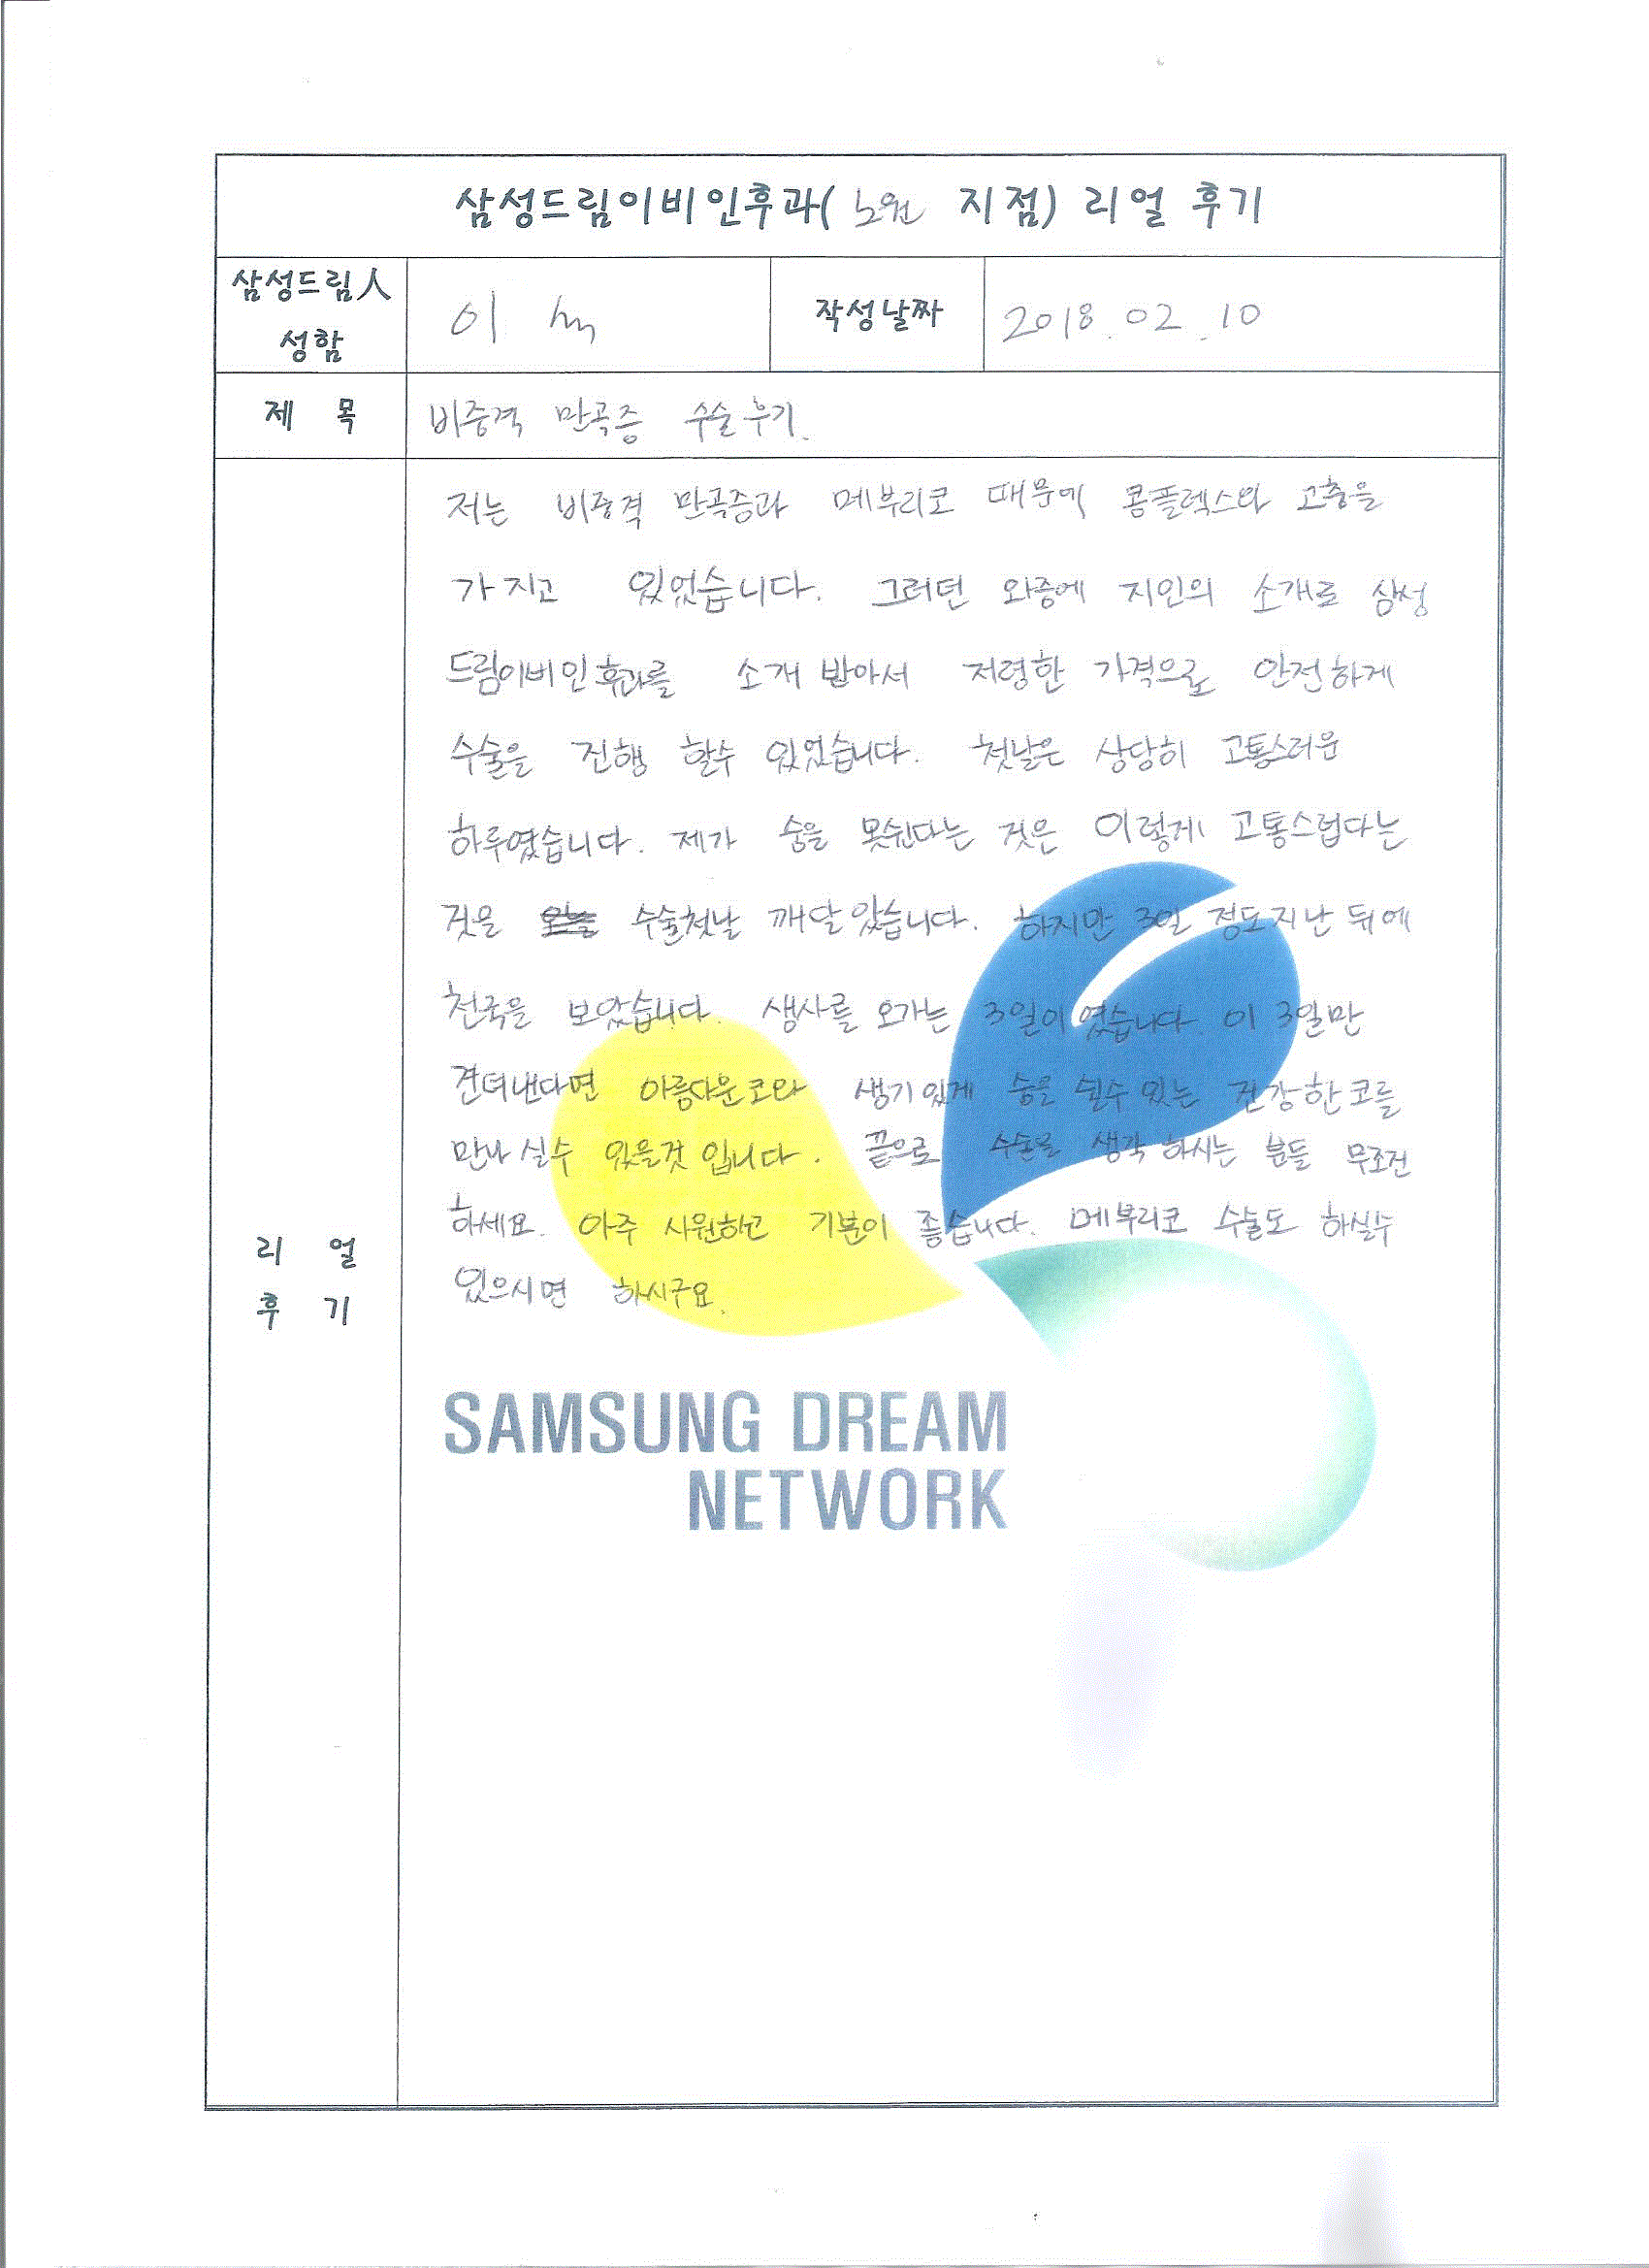 삼성드림이비인후과( 노원 지점) 리얼 후기
삼성드림人
성함
이
작성날짜
2018.02.10
제 목
비중격 만곡증 수술후기.
저는 비중격 만곡증과 메부리코 때문에 콤플렉스와 고충을
가지고 있었습니다. 그러던 와중에 지인의 소개로 삼성
드림이비인후과를 소개 받아서 저렴한 가격으로 안전하게
수술을 진행 할수 있었습니다. 첫날은 상당히 고통스러운
하루였습니다. 제가 숨을 못쉰다는 것은 이렇게 고통스럽다는
것을 수술첫날 깨달았습니다. 하지만 3일 정도 지난 뒤에
천국을 보았습니다. 생사를 오가는 3일이였습니다 이 3일만
견뎌낸다면 아름다운코와 생기있게 숨을 쉴수 있는 건강한 코를
만나실수 있을것 입니다. 끝으로 수술을 생각 하시는 분들 무조건
하세요. 아주 시원하고 기분이 좋습니다. 메부리코 수술도 하실수
있으시면 하시구요.
리 얼
후 기
SAMSUNG DREAM
NETWORK